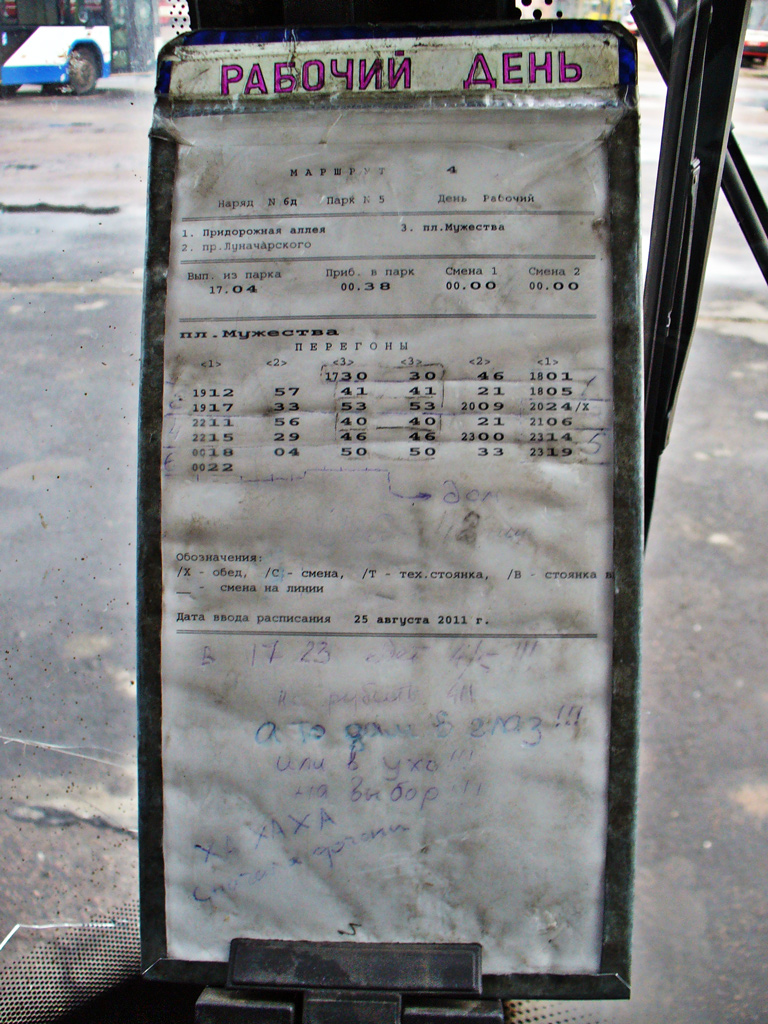 РАБОЧИЙ ДЕНЬ
МАРШРУТ 4
Наряд N 6д Парк N 5 День Рабочий
1. Придорожная аллея 3. пл.Мужества
2. пр.Луначарского
Вып. из парка Приб. в парк Смена 1 Смена 2
17.04 00.38 00.00 00.00
пл.Мужества
ПЕРЕГОНЫ
<1> <2> <3> <3> <2> <1>
1730 30 46 1801
1912 57 41 41 21 1805
1917 33 53 53 2009 2024/X
2211 56 40 40 21 2106
2215 29 46 46 2300 2314 5
0018 04 50 50 33 2319
0022
дом
Обозначения:
/Х - обед, /С - смена, /Т - тех.стоянка, /В - стоянка в
__ - смена на линии
Дата ввода расписания 25 августа 2011 г.
В 17 23 !!!
не рубить
а то дам в глаз!!!
или в ухо!!!
на выбор!!!
ХА ХАХА